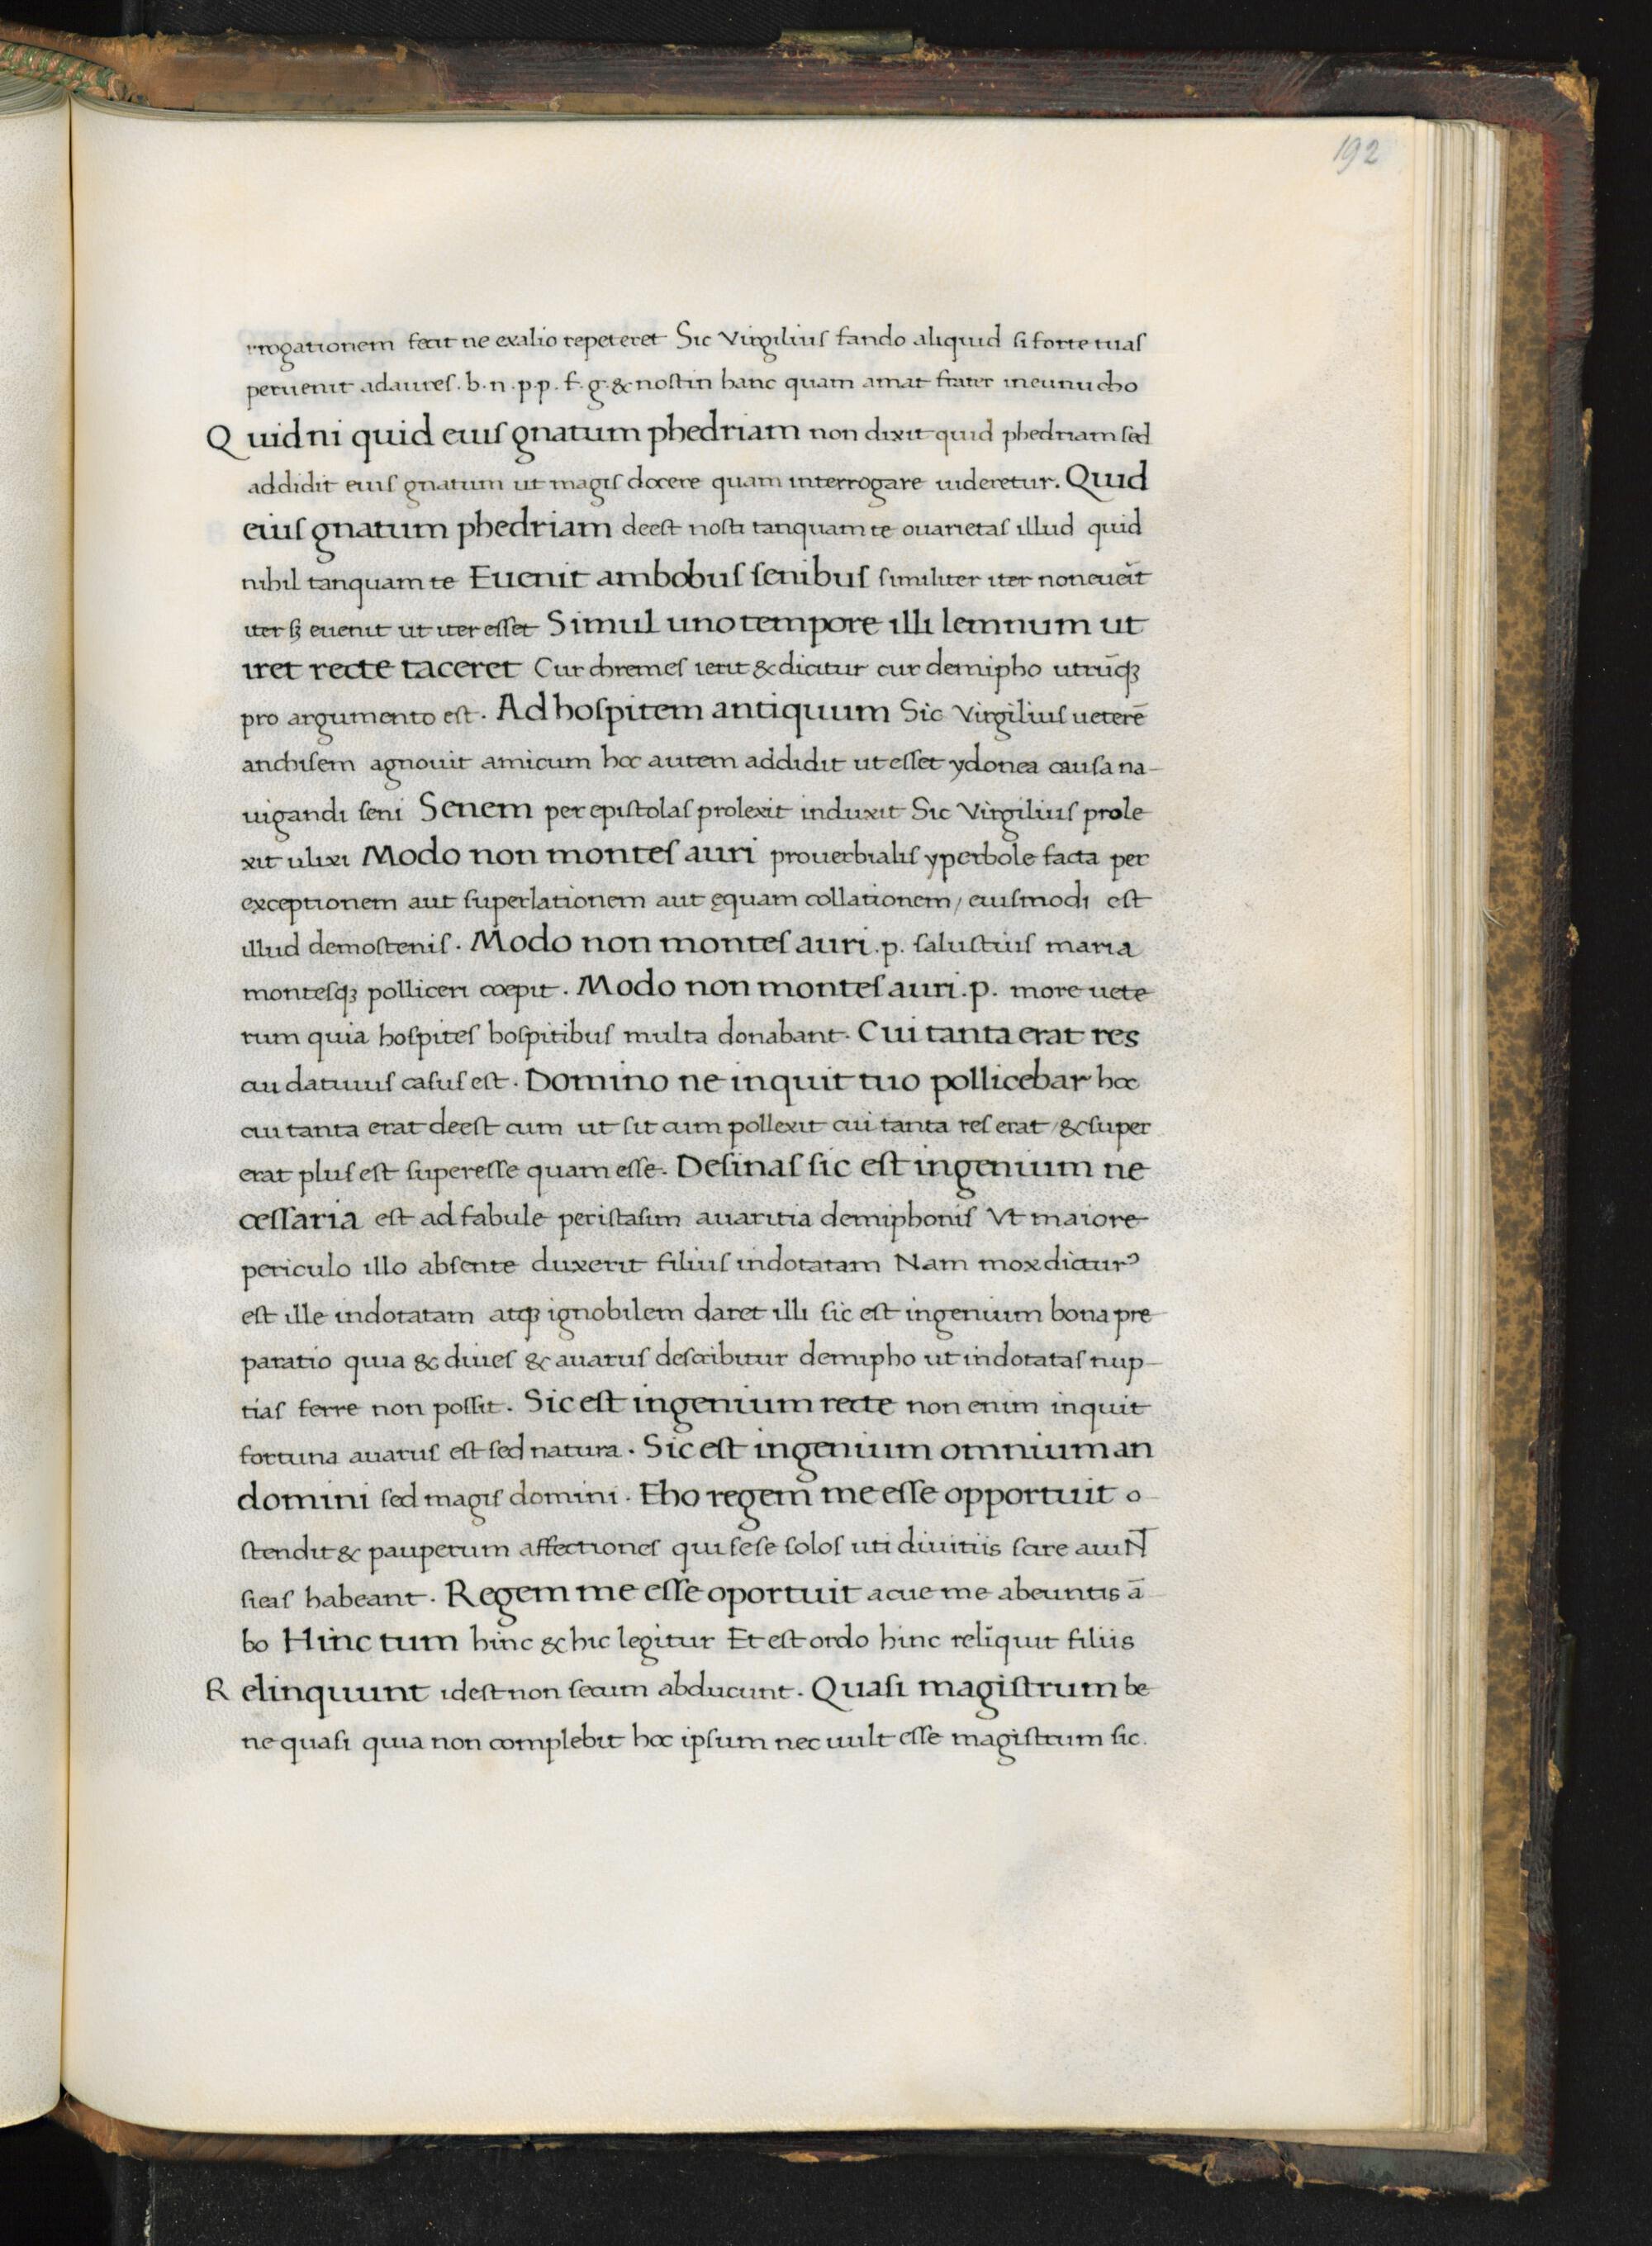 192
rrogationem fecit ne exalio repeteret Sic Virgilius fando aliquid si forte tuas
peruenit adaures . b . n . p . p . f . g . & nostin hanc quam amat frater ineunucho
Quidni quid eius gnatum phedriam non dixit quid phedriam sed
addidit eius gnatum ut magis docere quam interrogare uideretur . Quid
eius gnatum phedriam deest nosti tanquam te ouarietas illud quid
nihil tanquam te Euenit ambobus senibus similiter iter non eueĩt
iter sꝫ euenit ut iter esset Simul uno tempore illi lemnum ut
iret recte taceret Cur chremes ierit & dicitur cur demipho utrũqꝫ
pro argumento est . Ad hospitem antiquum Sic Virgilius ueterẽ
anchisem agnouit amicum hoc autem addidit ut esset ydonea causa na-
uigandi seni Senem per epistolas prolexit induxit Sic Virgilius prole
xit ulixi Modo non montes auri prouerbialis yperbole facta per
exceptionem aut superlationem aut ęquam collationem / eiusmodi est
illud demostenis . Modo non montes auri . p . salustius maria
montesqꝫ polliceri coepit . Modo non montes auri . p . more uete
rum quia hospites hospitibus multa donabant . Cui tanta erat res
cui datiuus casus est . Domino ne inquit tuo pollicebar hoc
cui tanta erat deest cum ut sit cum pollexit cui tanta res erat / & super
erat plus est superesse quam esse . Desinas sic est ingenium ne
cessaria est ad fabule peristasim auaritia demiphonis Vt maiore
periculo illo absente duxerit filius indotatam Nam mox dicturꝰ
est ille indotatam atqꝫ ignobilem daret illi sic est ingenium bona pre
paratio quia & diues & auarus describitur demipho ut indotatas nup-
tias ferre non possit . Sic est ingenium recte non enim inquit
fortuna auarus est sed natura . Sic est ingenium omnium an
domini sed magis domini . Eho regem me esse opportuit o
stendit & pauperum affectiones qui sese solos uti diuitiis scire
sicas habeant . Regem me esse oportuit acue me abeuntis ã
bo Hinc tum hinc & hic legitur Et est ordo hinc reliquit filiis
Relinquunt idest non secum abducunt . Quasi magistrum be
ne quasi quia non complebit hoc ipsum nec uult esse magistrum sic .